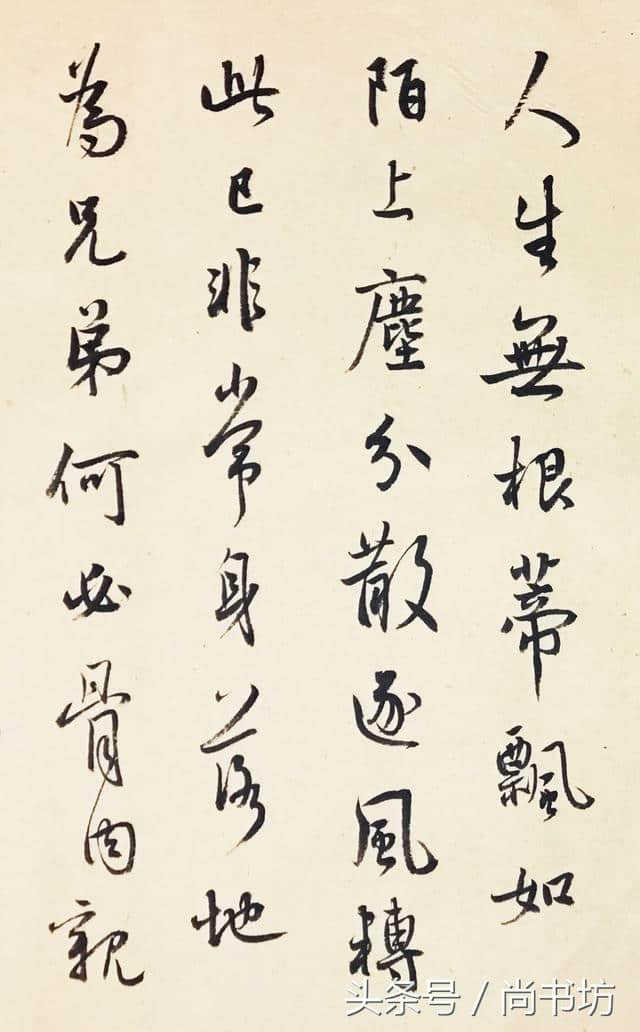 人生無根蒂飄如
陌上塵分散逐風轉
此已非常身落地
為兄弟何必骨肉親
头条号 / 尚书坊